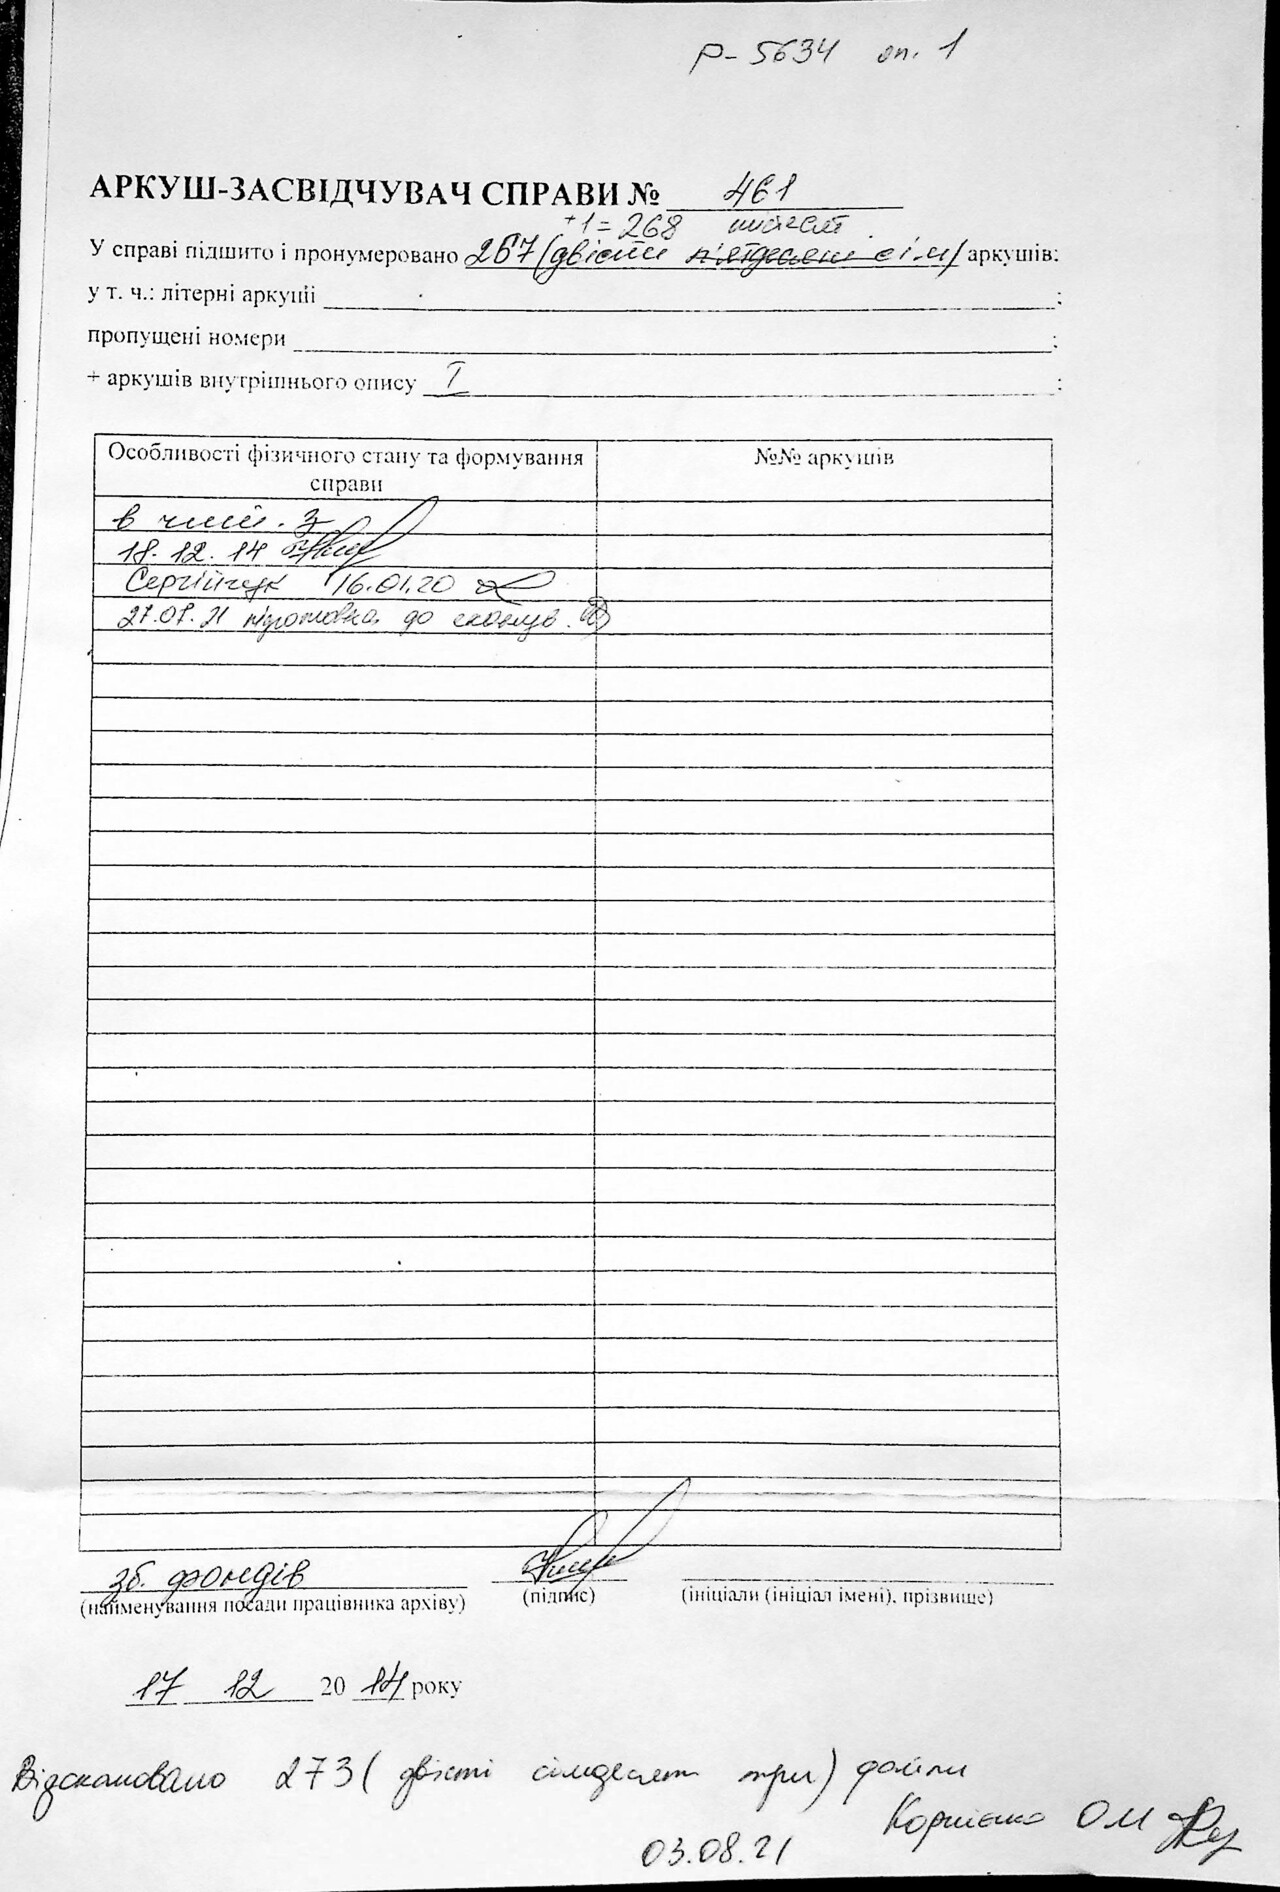 Р-5634 оп. 1
АРКУШ-ЗАСВІДЧУВАЧ СПРАВИ № 461
+1=268 шістдесят
У справі підшито і пронумеровано 267 (двісті п'ятдесят сім) аркушів:
у т. ч.: літерні аркуші ;
пропущені номери ;
+ аркушів внутрішнього опису 1 ;
Особливості фізичного стану та формування справи
№№ аркушів
в чит. з
18.12.14
Сергійчук 16.01.20
27.07.21 підготовка до сканув.
зб. фондів
(найменування посади працівника архіву) (підпис) (ініціали (ініціал імені), прізвище)
17 12 2014 року
Відскановано 273 (двісті сімдесят три) файли
Корнієнко О М
03.08.21